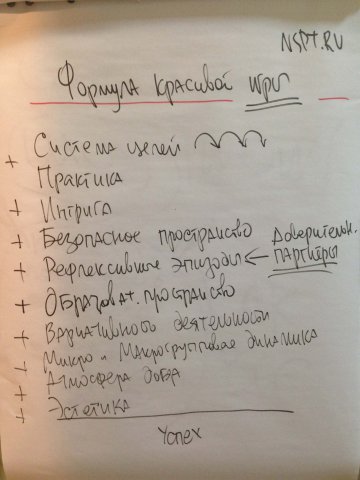 NSPT.RU
Формула красивой игры
+ Система целей
Практика
+ Интрига
+ Безопасное пространство
+ Рефлексивные эпизоды ← Доверительн. партнёры
+ Образоват. пространство
+ Вариативного деятельности
+ Микро и Макрогрупповая динамика
+ Атмосфера добра
+ Эстетика
Успех